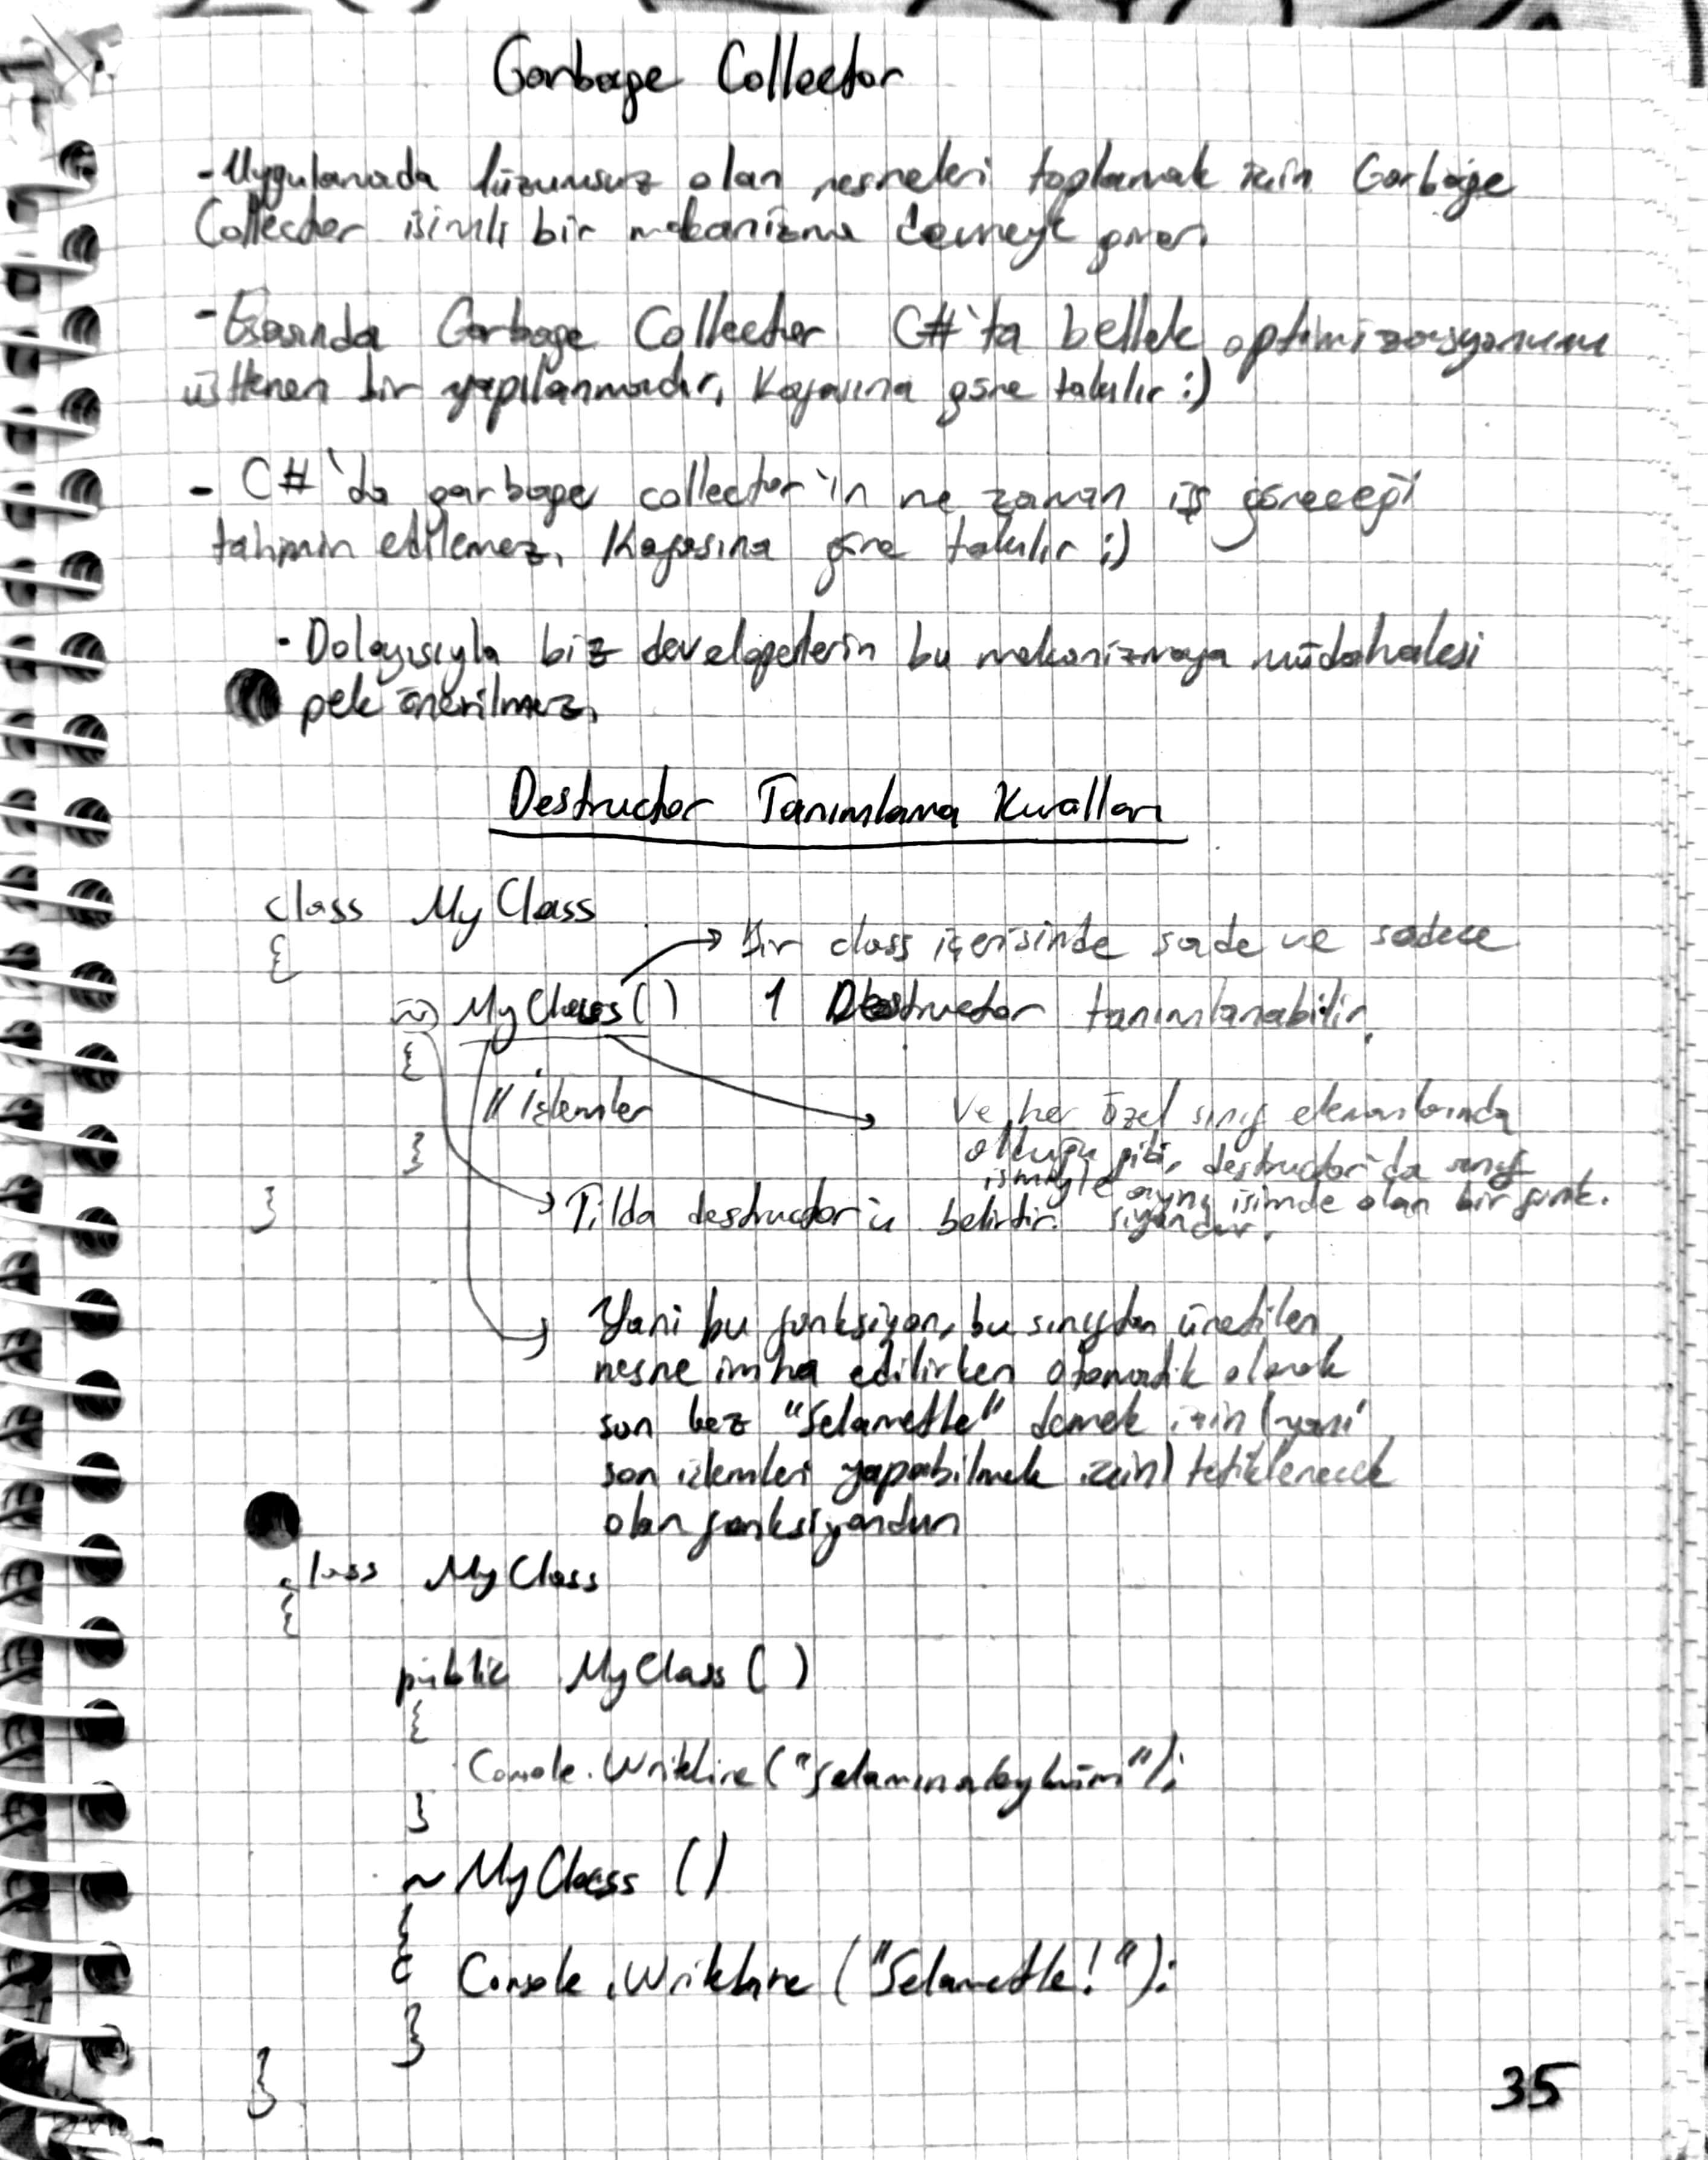 Garbage Collector
- Uygulamada lüzumsuz olan nesneleri toplamak için Garbage
Collector isimli bir mekanizma devreye girer.
- Esasında Garbage Collector C#'ta bellek optimizasyonunu
üstlenen bir yapılanmadır, Kafasına göre takılır :)
- C#'da garbage collector'ın ne zaman iş göreceği
tahmin edilemez. Kafasına göre takılır :)
- Dolayısıyla biz developerların bu mekanizmaya müdahalesi
pek önerilmez.
Destructor Tanımlama Kuralları
class MyClass
{
Bir class içerisinde sade ve sadece
~ MyClass() 1 Destructor tanımlanabilir.
{
// işlemler
Ve her özel sınıf elemanlarında
olduğu gibi, destructor'da sınıf
ismiyle aynı isimde olan bir fonk.
siyondur.
}
}
Tilda destructor'u belirtir.
Yani bu fonksiyon, bu sınıftan üretilen
nesne imha edilirken otomatik olarak
son kez "Selametle" demek için (yani
son işlemleri yapabilmek için) tetiklenecek
olan fonksiyondur
class MyClass
{
public MyClass()
{
Console.WriteLine("Selamınaleyküm");
}
~ MyClass()
{
Console.WriteLine("Selametle!");
}
}
35